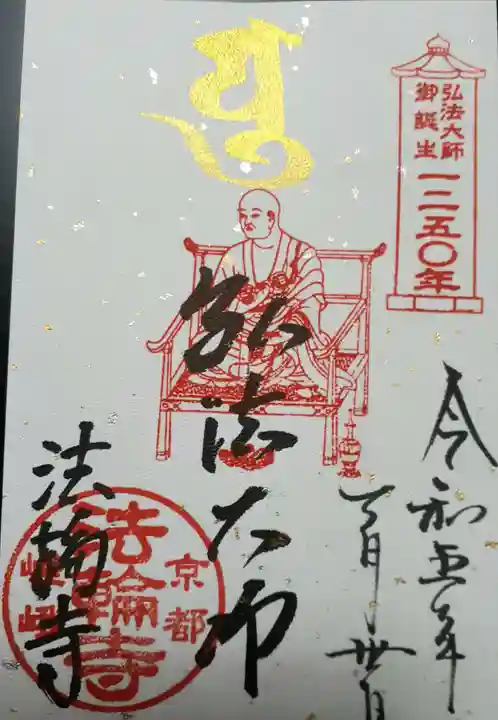 弘法大師
御誕生
一二五〇年
令和五年
月卅日
弘法大師
法輪寺
京都
法輪寺
嵯峨